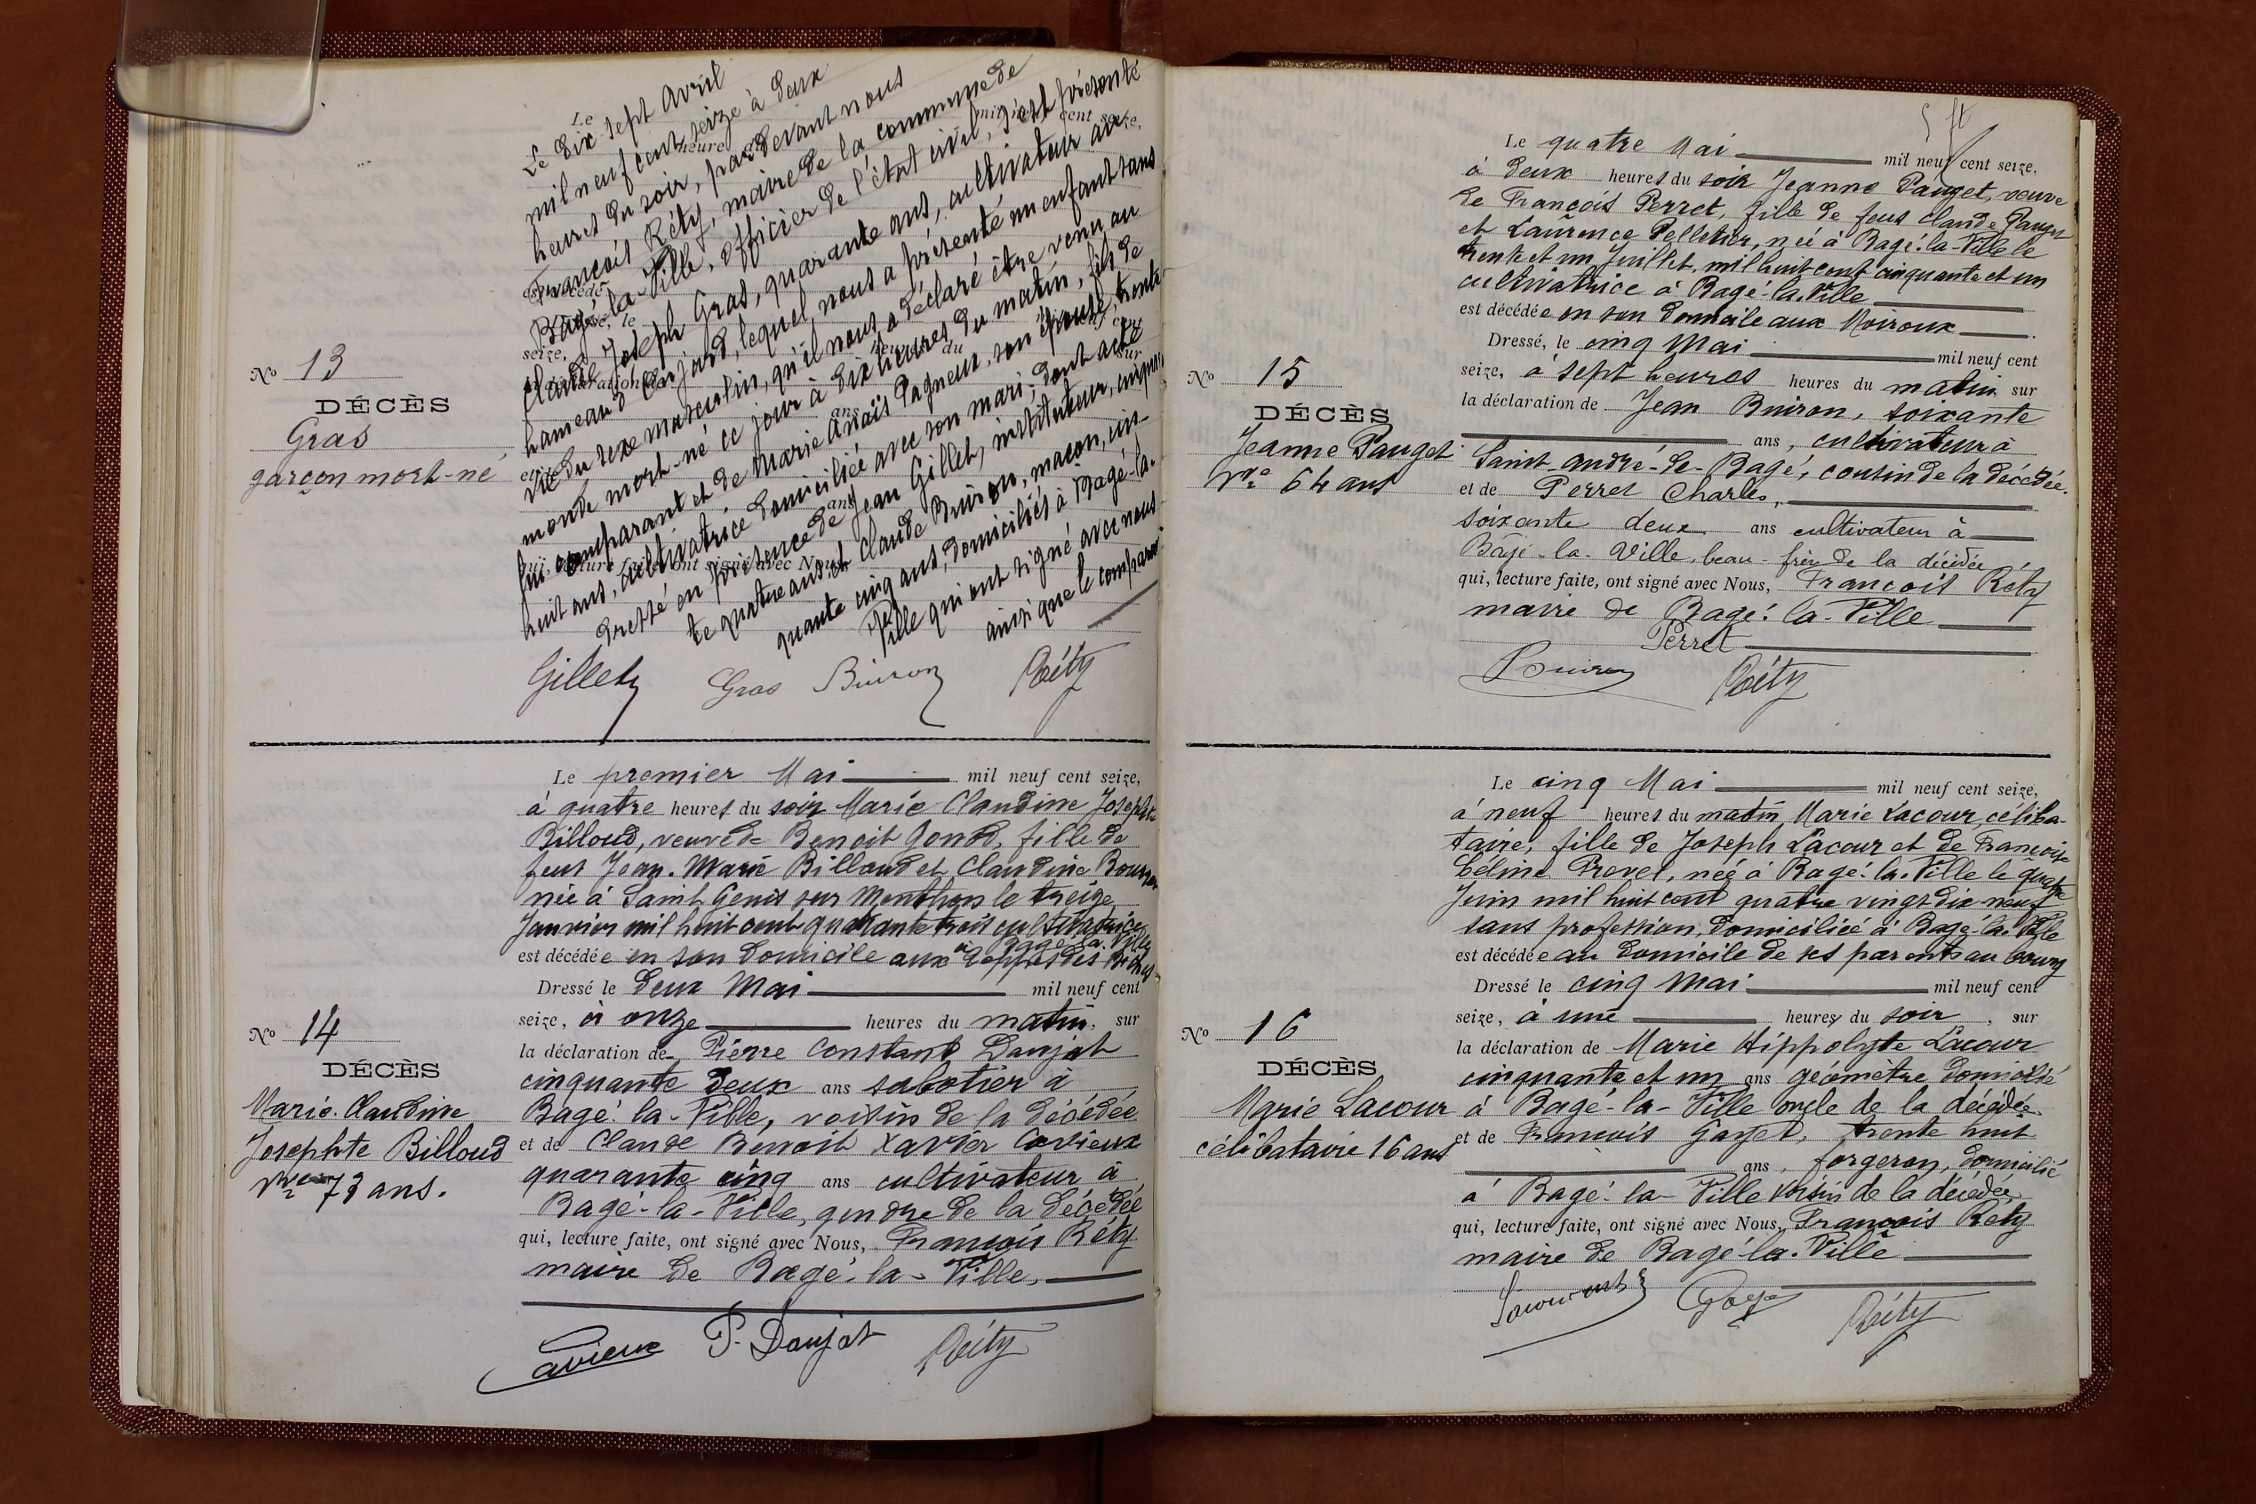 No 13
DÉCÈS
Gras
garçon mort-né
Le dix sept Avril
mil neuf cent seize à deux
heures du soir, par devant nous
François Réty, maire de la commune de
Bagé-la-Ville, officier de l'état civil, s'est présenté
Claude Joseph Gras, quarante ans, cultivateur au
hameau de jard, lequel nous a présenté un enfant sans
vie du sexe masculin, qu'il nous a déclaré être venu au
monde mort-né ce jour à dix heures du matin, fils de
lui comparant et de Marie Anaïs Pagneux, son épouse, trente
huit ans, cultivatrice domiciliée avec son mari; dont acte
dressé en présence de Jean Gillet, instituteur,
te quatre ans et Claude Buiron, maçon, cin-
quante cinq ans, domiciliés à Bagé-la-
Ville qui ont signé avec nous
ainsi que le comparant
Gillet Gras Buiron Réty
No 14
DÉCÈS
Marie Claudine
Josephte Billoud
Vve 73 ans.
Le premier Mai mil neuf cent seize,
à quatre heures du soir Marie Claudine Josephte
Billoud, veuve de Benoit Gond, fille de
feus Jean-Marie Billoud et Claudine
née à Saint Genis sur Menthon le treize
Janvier mil huit cent quarante trois cultivatrice
à Bagé-la-Ville
est décédée en son domicile aux
Dressé le deux Mai mil neuf cent
seize, à onze heures du matin, sur
la déclaration de Pierre Constant Danjat
cinquante deux ans sabotier à
Bagé-la-Ville, voisin de la décédée
et de Claude Benoit Xavier Cavieux
quarante cinq ans cultivateur à
Bagé-la-Ville, gendre de la décédée
qui, lecture faite, ont signé avec Nous, François Réty
maire de Bagé-la-Ville,
Cavieux P. Danjat Réty
No 15
DÉCÈS
Jeanne Pauget
Vve 64 ans
Le quatre Mai mil neuf cent seize,
à deux heures du soir Jeanne Pauget, veuve
de François Perret, fille de feus Claude Pauget
et Laurence Pelletier, née à Bagé-la-Ville le
trente et un Juillet, mil huit cent cinquante et un
cultivatrice à Bagé-la-Ville
est décédée en son domicile aux Moiroux
Dressé, le cinq Mai mil neuf cent
seize, à sept heures heures du matin sur
la déclaration de Jean Buiron, soixante
ans, cultivateur à
Saint-André-de-Bagé, cousin de la décédée.
et de Perret Charles,
soixante deux ans cultivateur à
Bâgé-la-Ville, beau-frère de la décédée
qui, lecture faite, ont signé avec Nous, François Réty
maire de Bagé-la-Ville
Perret
Buiron Réty
No 16
DÉCÈS
Marie Lacour
célibataire 16 ans
Le cinq Mai mil neuf cent seize,
à neuf heures du matin Marie Lacour, céliba-
taire, fille de Joseph Lacour et de Françoise
Céline Prevel, née à Bagé-la-Ville le quatre
Juin mil huit cent quatre vingt dix neuf
sans profession, domiciliée à Bagé-la-Ville
est décédée au domicile de ses parents au bourg
Dressé le cinq Mai mil neuf cent
seize, à une heures du soir, sur
la déclaration de Marie Hippolyte Lacour
cinquante et un ans géomètre domicilié
à Bagé-la-Ville oncle de la décédée
et de François Gayet, trente huit
ans, forgeron, domicilié
à Bagé-la-Ville voisin de la décédée,
qui, lecture faite, ont signé avec Nous, François Réty
maire de Bagé-la-Ville
Gayet Réty